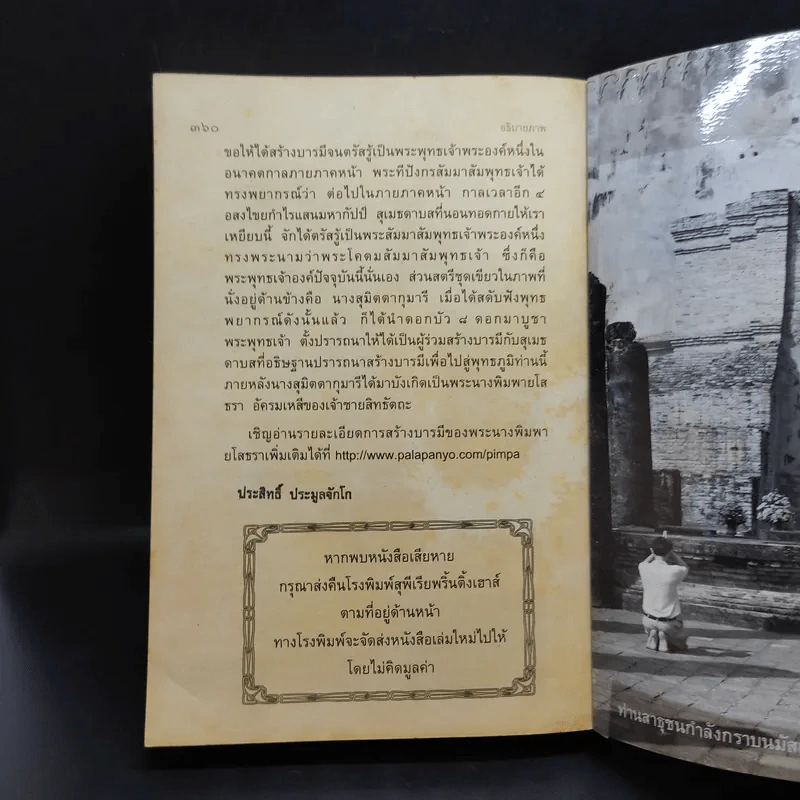 ๓๖๐
อธิบายภาพ
ขอให้ได้สร้างบารมีจนตรัสรู้เป็นพระพุทธเจ้าพระองค์หนึ่งใน
อนาคตกาลภายภาคหน้า พระทีปังกรสัมมาสัมพุทธเจ้าได้
ทรงพยากรณ์ว่า ต่อไปในภายภาคหน้า กาลเวลาอีก ๔
อสงไขยกำไรแสนมหากัปป์ สุเมธดาบสที่นอนทอดกายให้เรา
เหยียบนี้ จักได้ตรัสรู้เป็นพระสัมมาสัมพุทธเจ้าพระองค์หนึ่ง
ทรงพระนามว่าพระโคดมสัมมาสัมพุทธเจ้า ซึ่งก็คือ
พระพุทธเจ้าองค์ปัจจุบันนี้นั่นเอง ส่วนสตรีชุดเขียวในภาพที่
นั่งอยู่ด้านข้างคือ นางสุมิตตากุมารี เมื่อได้สดับฟังพุทธ
พยากรณ์ดังนั้นแล้ว ก็ได้นำดอกบัว ๘ ดอกมาบูชา
พระพุทธเจ้า ตั้งปรารถนาให้ได้เป็นผู้ร่วมสร้างบารมีกับสุเมธ
ดาบสที่อธิษฐานปรารถนาสร้างบารมีเพื่อไปสู่พุทธภูมิท่านนี้
ภายหลังนางสุมิตตากุมารีได้มาบังเกิดเป็นพระนางพิมพายโส
ธรา อัครมเหสีของเจ้าชายสิทธัตถะ
เชิญอ่านรายละเอียดการสร้างบารมีของพระนางพิมพา
ยโสธราเพิ่มเติมได้ที่ http://www.palapanyo.com/pimpa
ประสิทธิ์ ประมูลจักโก
หากพบหนังสือเสียหาย
กรุณาส่งคืนโรงพิมพ์สุพีเรียพริ้นติ้งเฮาส์
ตามที่อยู่ด้านหน้า
ทางโรงพิมพ์จะจัดส่งหนังสือเล่มใหม่ไปให้
โดยไม่คิดมูลค่า
ท่านสาธุชนกำลังกราบนมัส